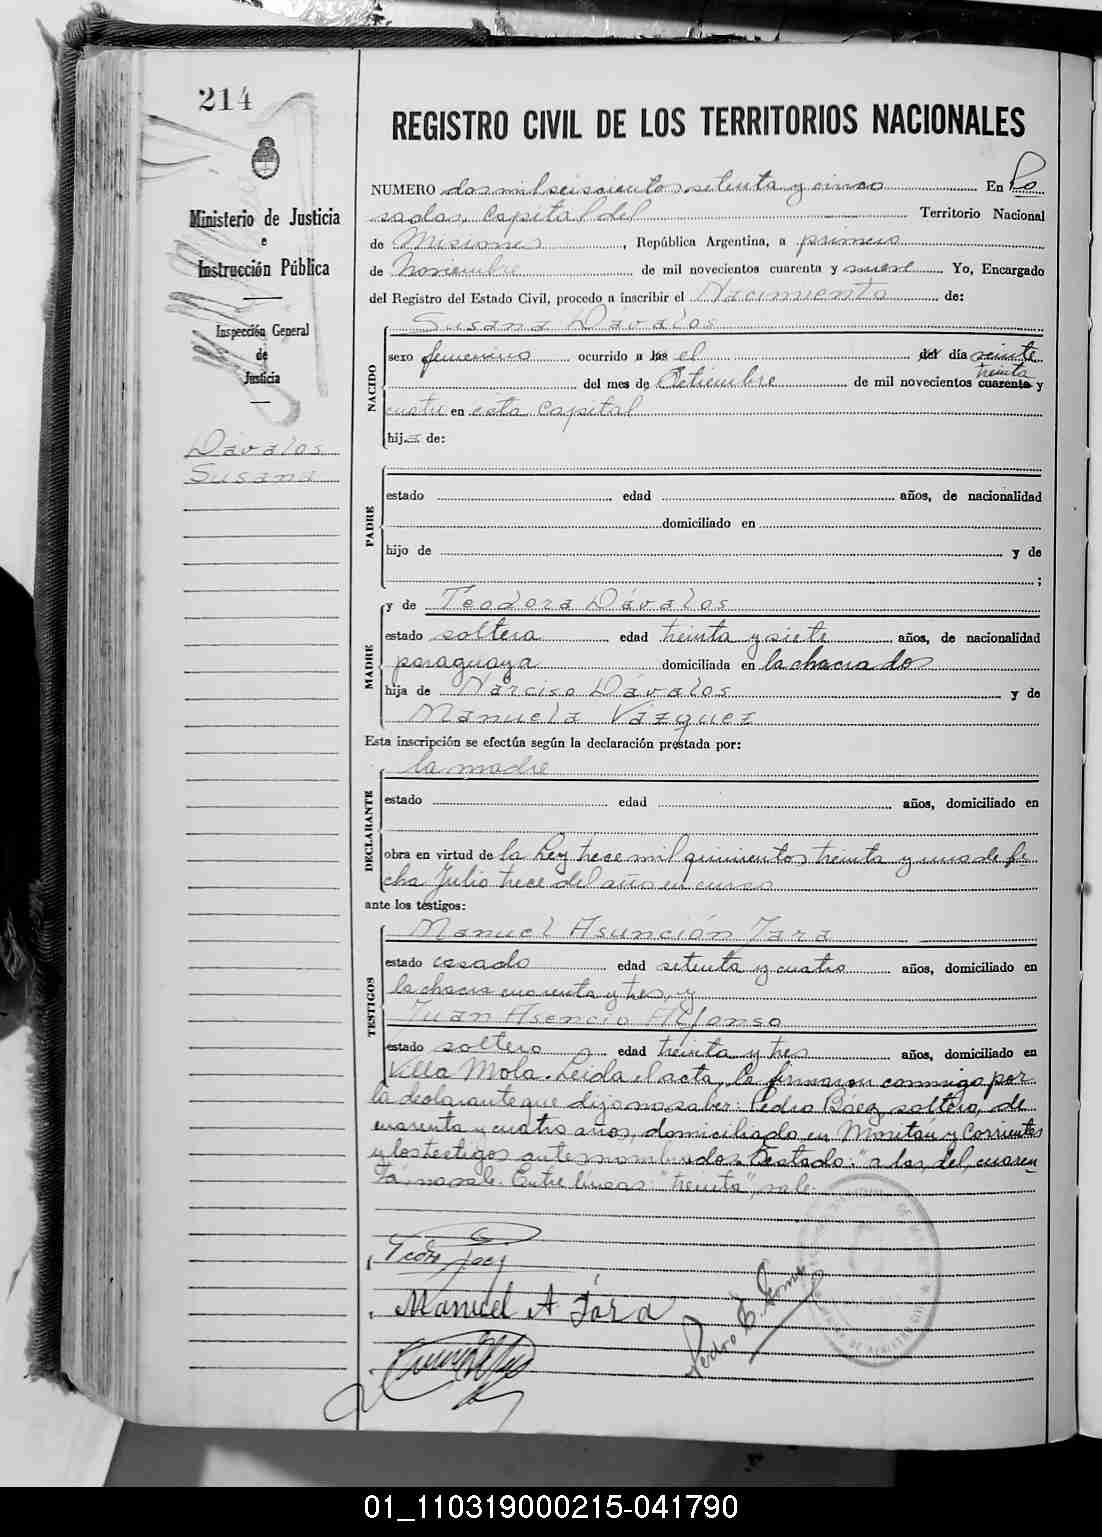 214
REGISTRO CIVIL DE LOS TERRITORIOS NACIONALES
Ministerio de Justicia
e
Instrucción Pública
Inspección General
de
Justicia
Dávalos
Susana
NUMERO dos mil seiscientos setenta y cinco En Po
sadas, Capital del Territorio Nacional
de Misiones, República Argentina, a primero
de Noviembre de mil novecientos cuarenta y nueve Yo, Encargado
del Registro del Estado Civil, procedo a inscribir el Nacimiento de:
Susana Dávalos
NACIDO
sexo femenino ocurrido a las el del día veinte
treinta
del mes de Setiembre de mil novecientos cuarenta y
cuatro en esta Capital
hija de:
PADRE
estado edad años, de nacionalidad
domiciliado en
hijo de y de
;
MADRE
y de Teodora Dávalos
estado soltera edad treinta y siete años, de nacionalidad
paraguaya domiciliada en la chacra dos
hija de Narciso Dávalos y de
Manuela Vázquez
Esta inscripción se efectúa según la declaración prestada por:
DECLARANTE
la madre
estado edad años, domiciliado en
obra en virtud de la Ley trece mil quinientos treinta y uno de fe
cha Julio trece del año en curso
ante los testigos:
TESTIGOS
Manuel Asunción Jara
estado casado edad setenta y cuatro años, domiciliado en
la chacra cuarenta y tres, y
Juan Asencio Alfonso
estado soltero edad treinta y tres años, domiciliado en
Villa Mola. Leida el acta, la firmaron conmigo por
la declarante que dijo no saber: Pedro Báez, soltero, de
cuarenta y cuatro años, domiciliado en y Corrientes
y los testigos antes nombrados. Testado: "a las, del, cuaren
ta", no vale. Entre lineas: "treinta", vale.
Manuel A Jara
Pedro E. Gome
01_110319000215-041790